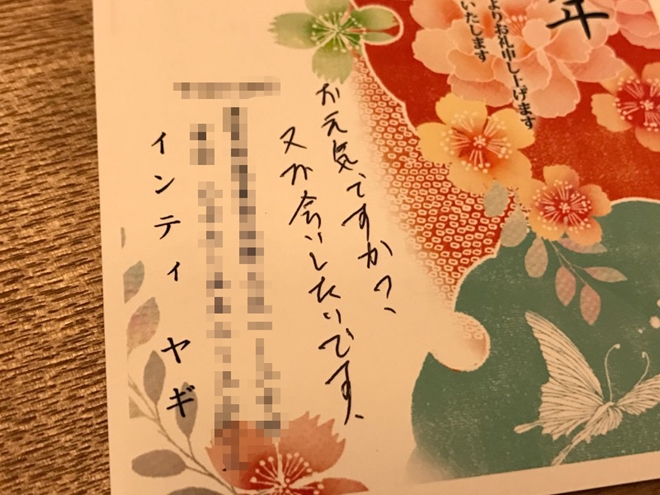 年
よりお礼申し上げます
いたします
お元気ですか?
又お会いしたいです、
インティ ヤギ